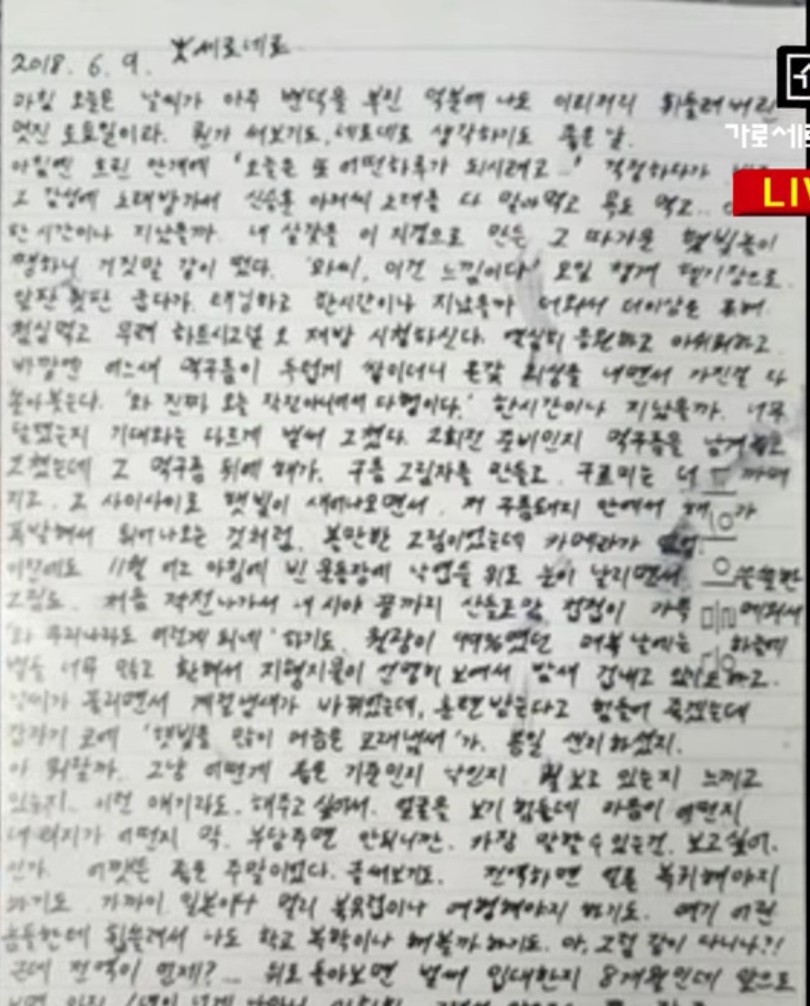 2018. 6. 9. 大세로네로
마침 오늘은 날씨가 아주 변덕을 부린 덕분에 나도 이리저리 휘둘려버린
멋진 토요일이라. 뭔가 써보기도, 네로네로 생각하기도 좋은 날.
아침엔 흐린 안개에 '오늘은 또 어떤하루가 되시려고..' 걱정하다가
그 감성에 노래방가서 신승훈 아저씨 노래를 다 말아먹고 목도 먹고..
한 시간이나 지났을까. 내 살갗을 이 지경으로 만든 그 따가운 햇빛놈이
쨍하니 거짓말 같이 떴다. '와씨, 이건 느낌이다' 오일 챙겨 헬기장으로.
앞판 뒷판 굽다가. 태닝하고 한시간이나 지났을까 더워서 더이상은 무리.
점심먹고 무려 하트시그널 2 재방 시청하신다. 열심히 응원하고 아쉬워하고.
바깥엔 어느새 먹구름이 두껍게 쌓이더니 온갖 괴성을 내면서 가진걸 다
쏟아붓는다. '와 진짜 오늘 작전아니여서 다행이다.' 한시간이나 지났을까. 너무
달렸는지 기대와는 다르게 벌써 그쳤다. 2회전 준비인지 먹구름을 남겨두고
그쳤는데 그 먹구름 뒤에 해가, 구름 그림자를 만들고. 구르미는 더 까매
지고. 그 사이사이로 햇빛이 새어나오면서. 저 구름돼지 안에서 해가
폭발해서 튀어나오는 것처럼. 볼만한 그림이었는데 카메라가 없음.
이전에도 11월 어느 아침에 빈 운동장에 낙엽들 위로 눈이 날리면서 쓸쓸한
그림도. 처음 작전나가서 내 시야 끝까지 산등고만 겹겹이 가득 메워서
'와 우리나라도 이렇게 되네' 하기도. 월광이 99%였던 매복날에는 하늘에
별들 너무 많고 환해서 지형지물이 선명히 보여서 밤새 겁내고 있기도하고.
날씨가 풀리면서 계절냄새가 바뀌었는데, 훈련받는다고 힘들어 죽겠는데
갑자기 코에 '햇빛을 많이 머금은 모래냄새'가. 봄일 센치하셨지.
아 뭐랄까. 그냥 어떻게 좋은 기준인지 낙인지 뭘 보고 있는지 느끼고
있는지. 이런 얘기라도. 해주고 싶어서. 얼굴을 보기 힘든데 마음이 어떤지
내 의지가 어떤지 막. 부담주면 안되니깐. 가장 말할 수 있는건. 보고싶어.
인가. 어쨋든 좋은 주말이었다. 글써보기도. 전역하면 얼른 복귀해야지
하기도 가까이 일본이나 멀리 북유럽이나 여행해야지 하기도. 여기 어린
놈들한테 휩쓸려서 나도 학교 복학이나 해볼까하기도. 아, 그럼 같이 다니나?!
근데 전역이 언제?... 뒤로 돌아보면 벌써 입대한지 8개월인데 앞으로
가로세로
LIV